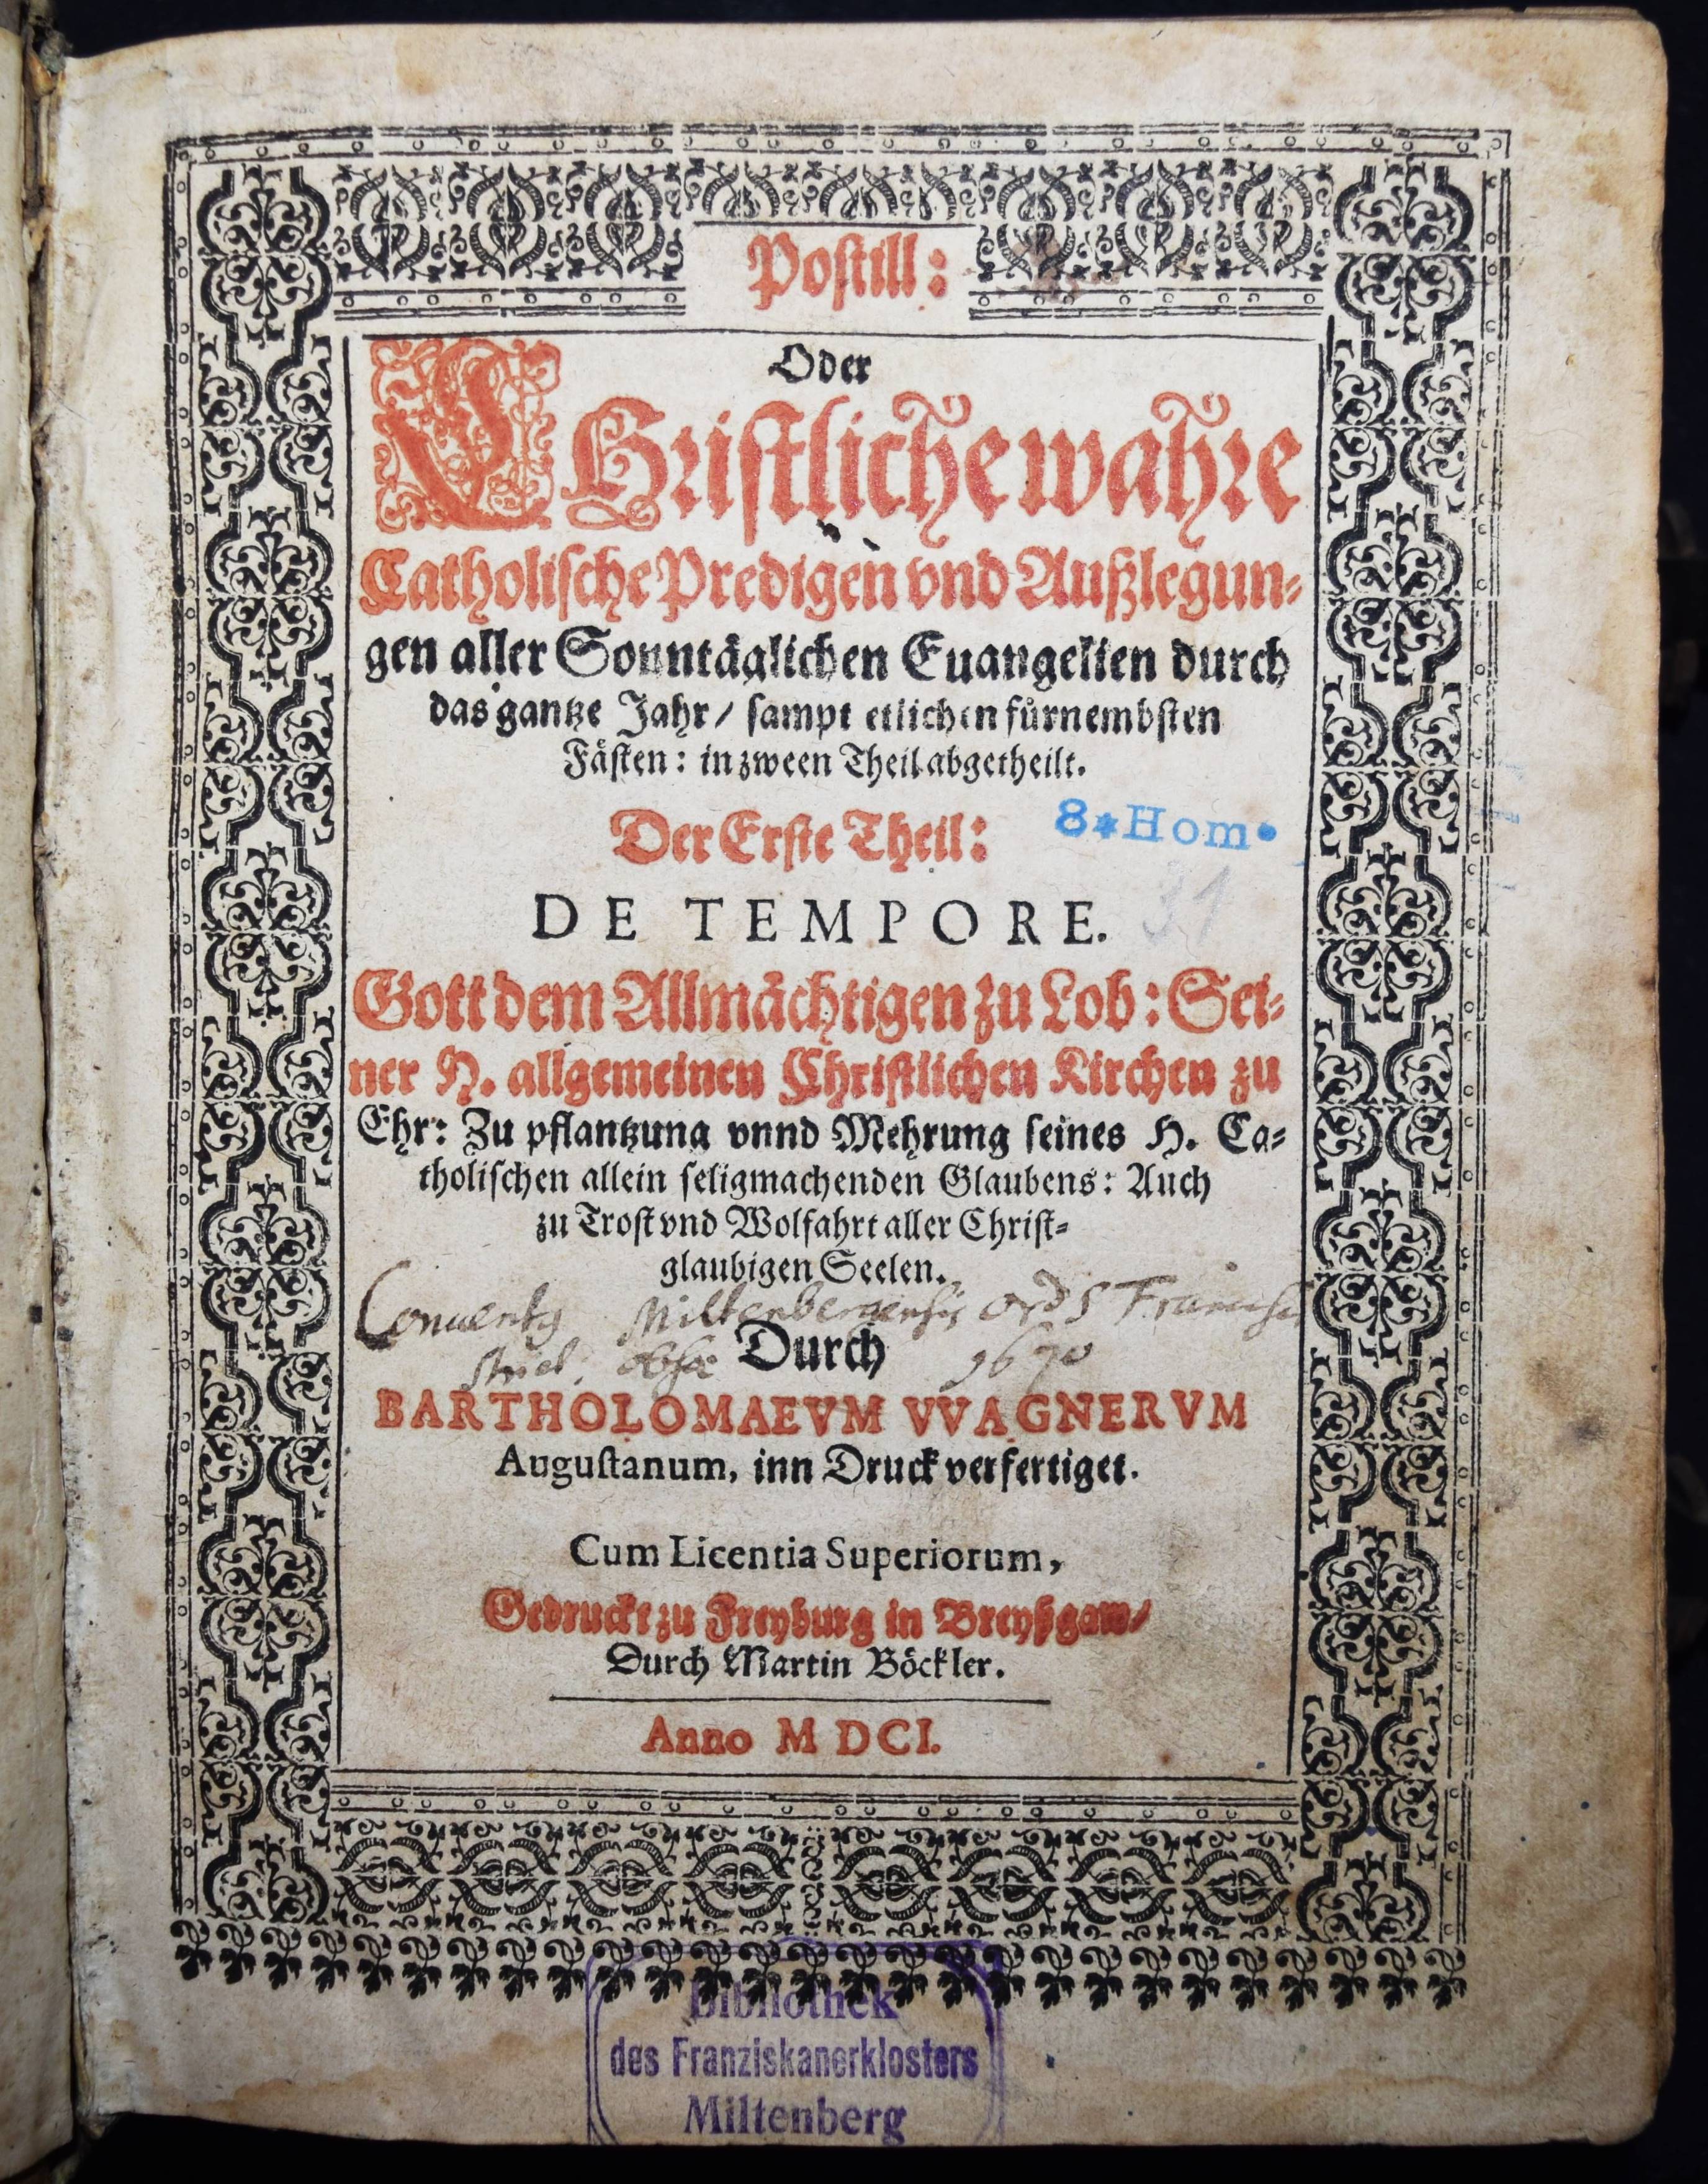 Postill:
Oder
CHristliche wahre
Catholische Predigen vnd Außlegun-
gen aller Sonntäglichen Euangelien durch
das gantze Jahr / sampt etlichen fürnembsten
Fästen: in zween Theil abgetheilt.
Der Erste Theil:
8*Hom•
31
DE TEMPORE.
Gott dem Allmächtigen zu Lob: Sei-
ner H. allgemeinen Christlichen Kirchen zu
Ehr: Zu pflantzung vnnd Mehrung seines H. Ca-
tholischen allein seligmachenden Glaubens: Auch
zu Trost vnd Wolfahrt aller Christ-
glaubigen Seelen.
Conuentus Miltenbergensis ord S Francisci
Durch
strict: obser: 1670
BARTHOLOMAEVM VVAGNERVM
Augustanum, inn Druck verfertiget.
Cum Licentia Superiorum,
Gedruckt zu Freyburg in Breyßgaw/
Durch Martin Böckler.
Anno M DCI.
Bibliothek
des Franziskanerklosters
Miltenberg